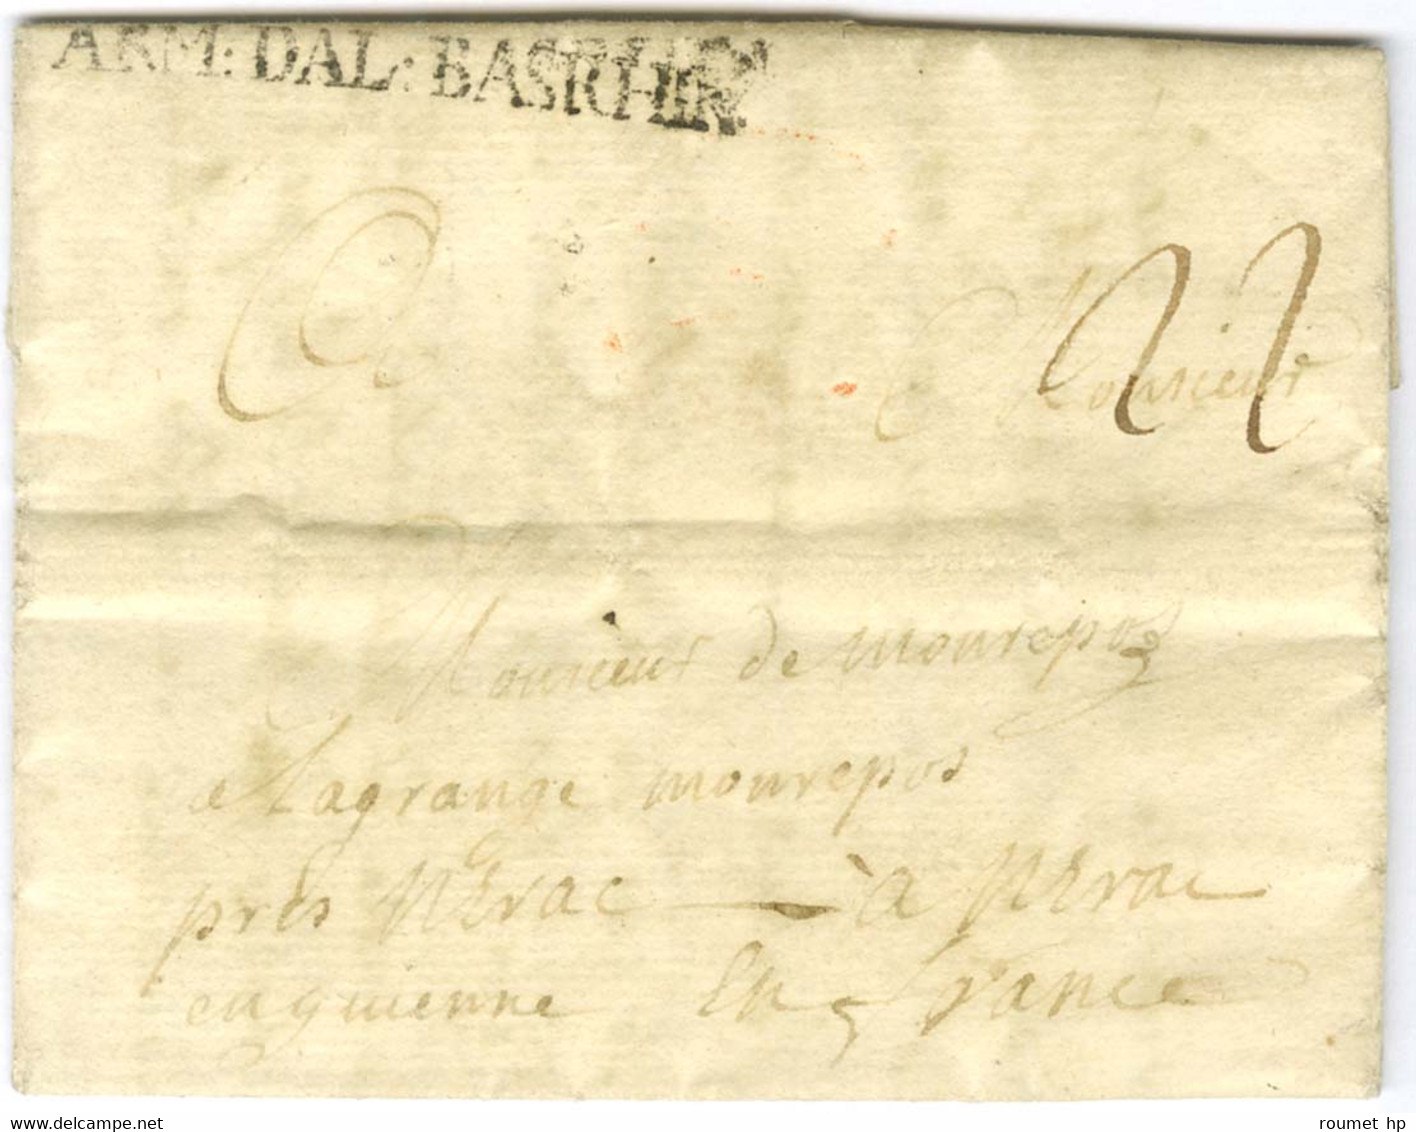 ARM: DAL: BASRHIN.
22
Monsieur
Monsieur de monrepos
a Lagrange monrepos
près Nérac — à Nérac
en guienne En france
www.delcampe.net
roumet hp